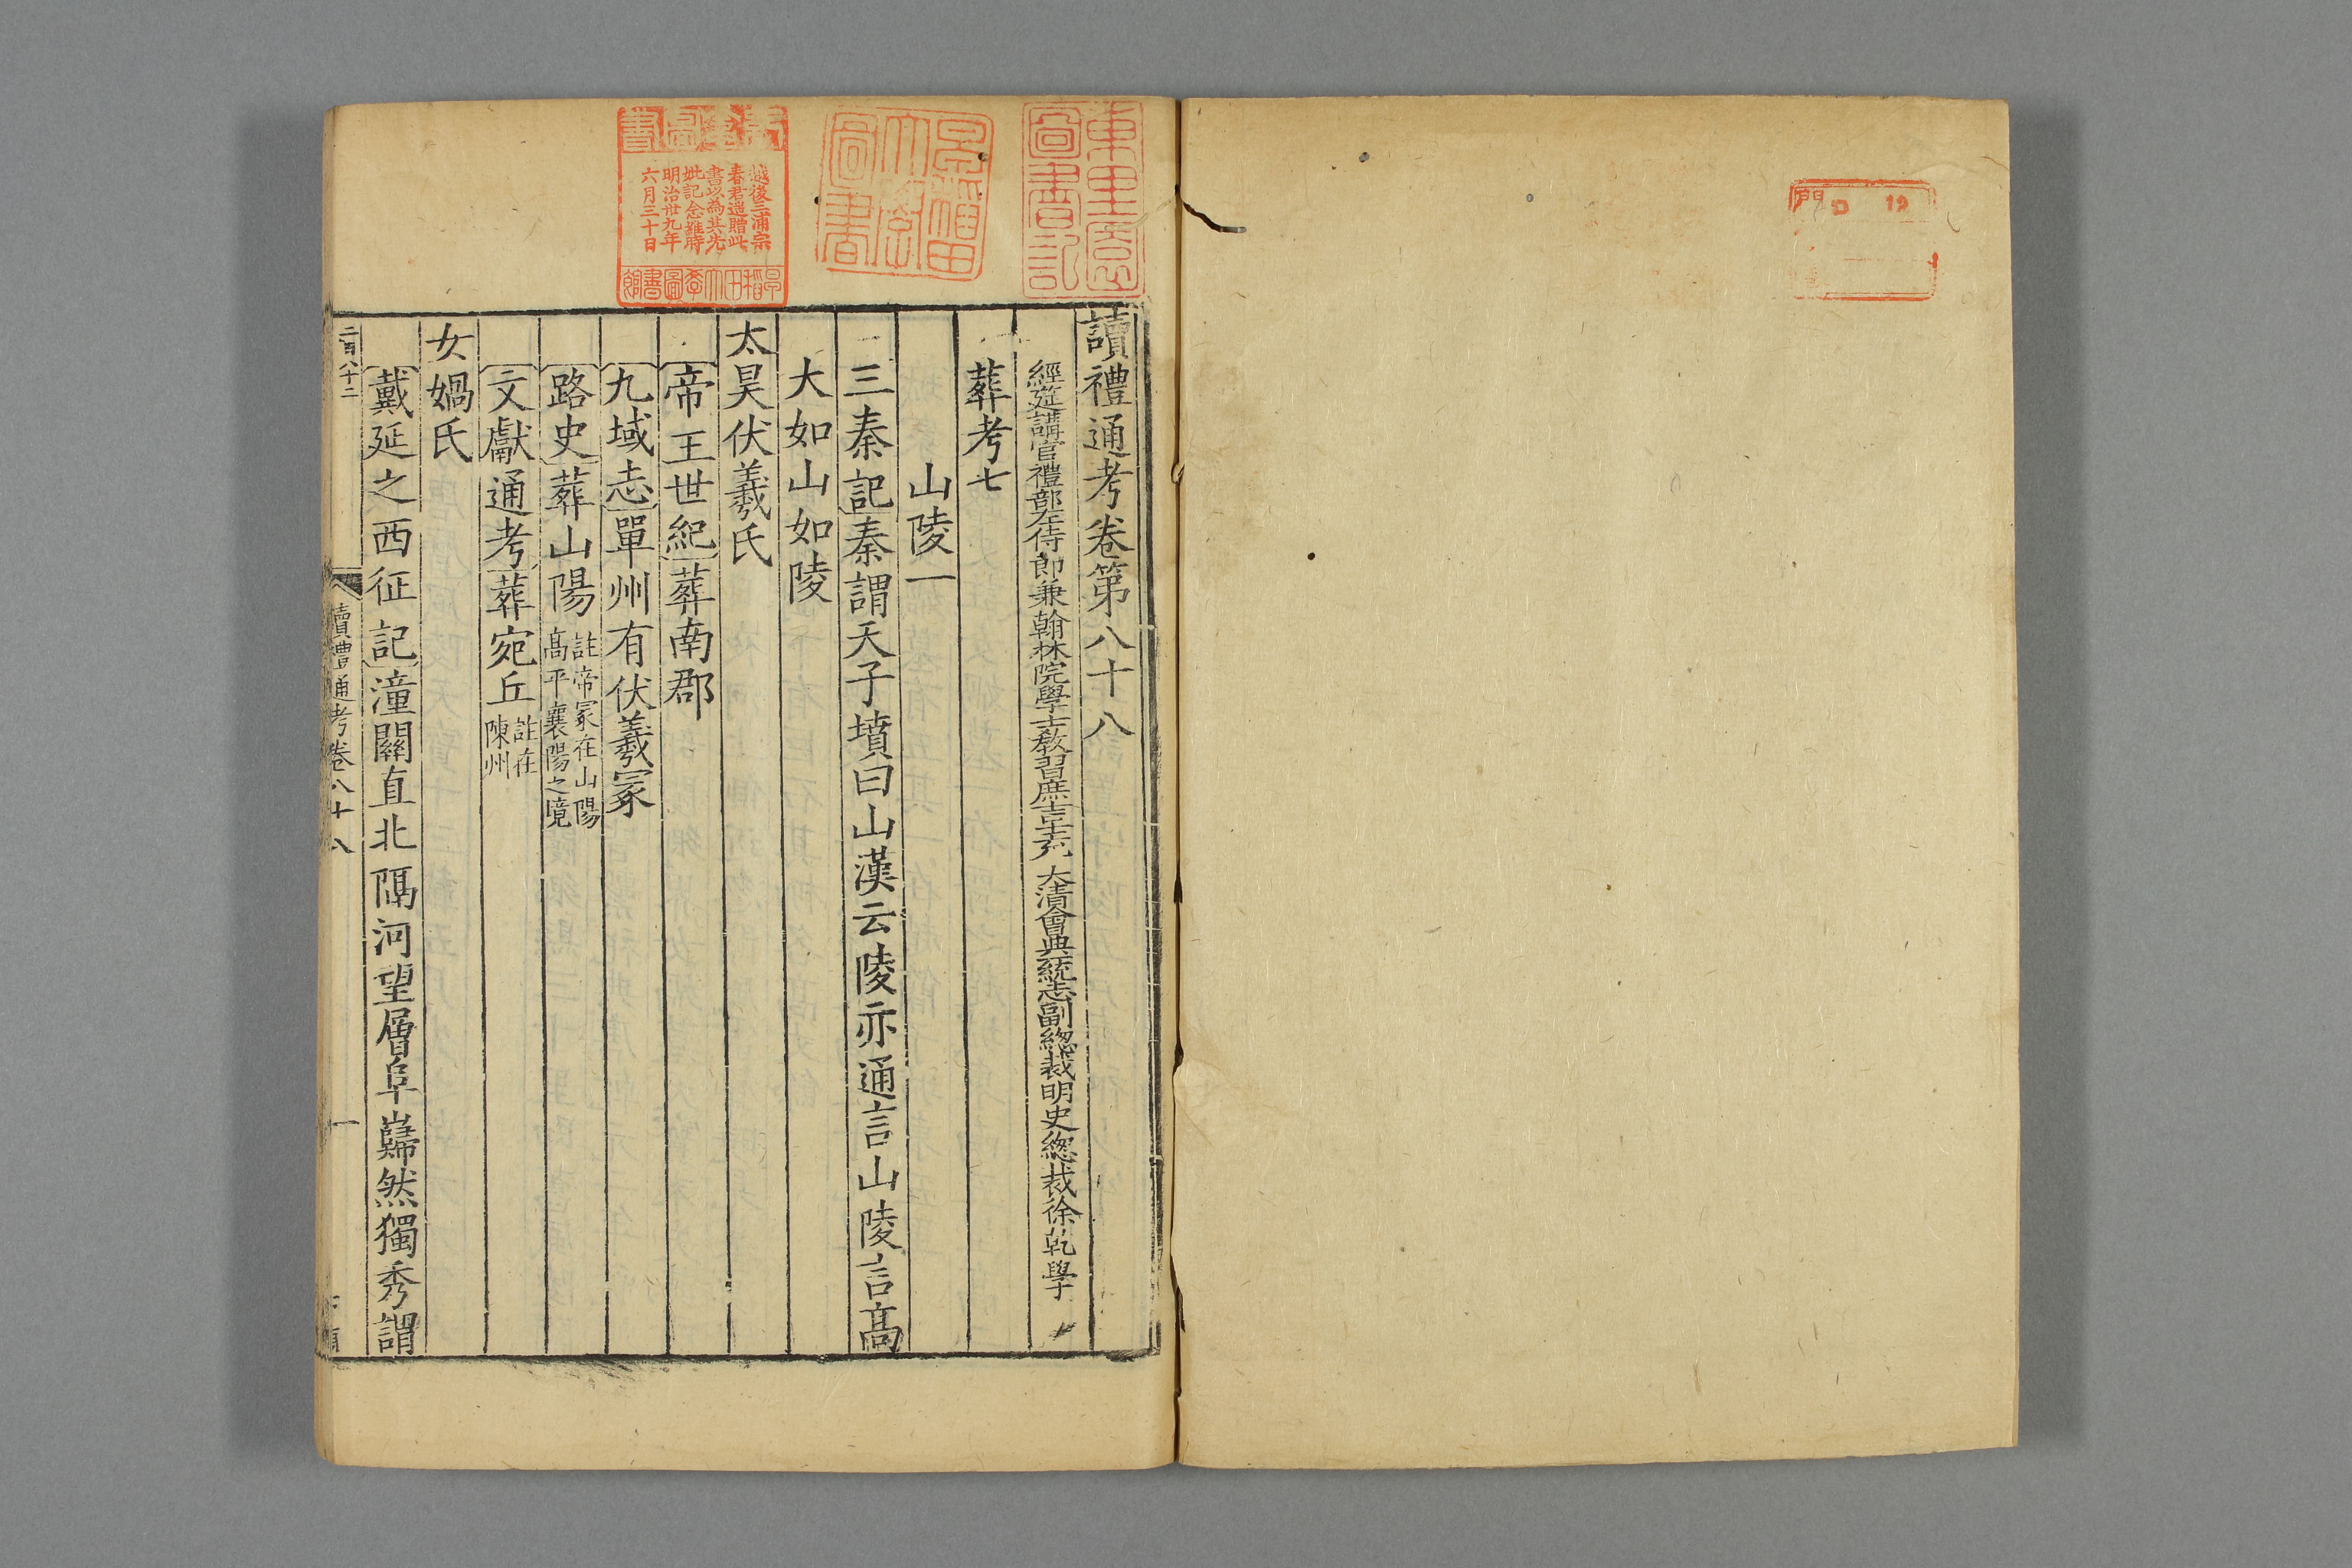 門 口 12
東里圖書記
早稲田大學圖書
越後三浦宗
春君遥贈此
書以為其先
妣記念維時
明治卅九年
六月三十日
早稲田大學圖書館
讀禮通考卷第八十八
經筵講官禮部左侍郎兼翰林院學士教習庶吉士充 大清會典一統志副總裁明史總裁徐乾學
葬考七
山陵一
三秦記秦謂天子墳曰山漢云陵亦通言山陵言高
大如山如陵
太昊伏羲氏
帝王世紀葬南郡
九域志單州有伏羲冢
路史葬山陽註帝冢在山陽高平襄陽之境
文獻通考葬宛丘註在陳州
女媧氏
戴延之西征記潼關直北隔河望層阜巋然獨秀謂
二百八十二
讀禮通考卷八十八
一